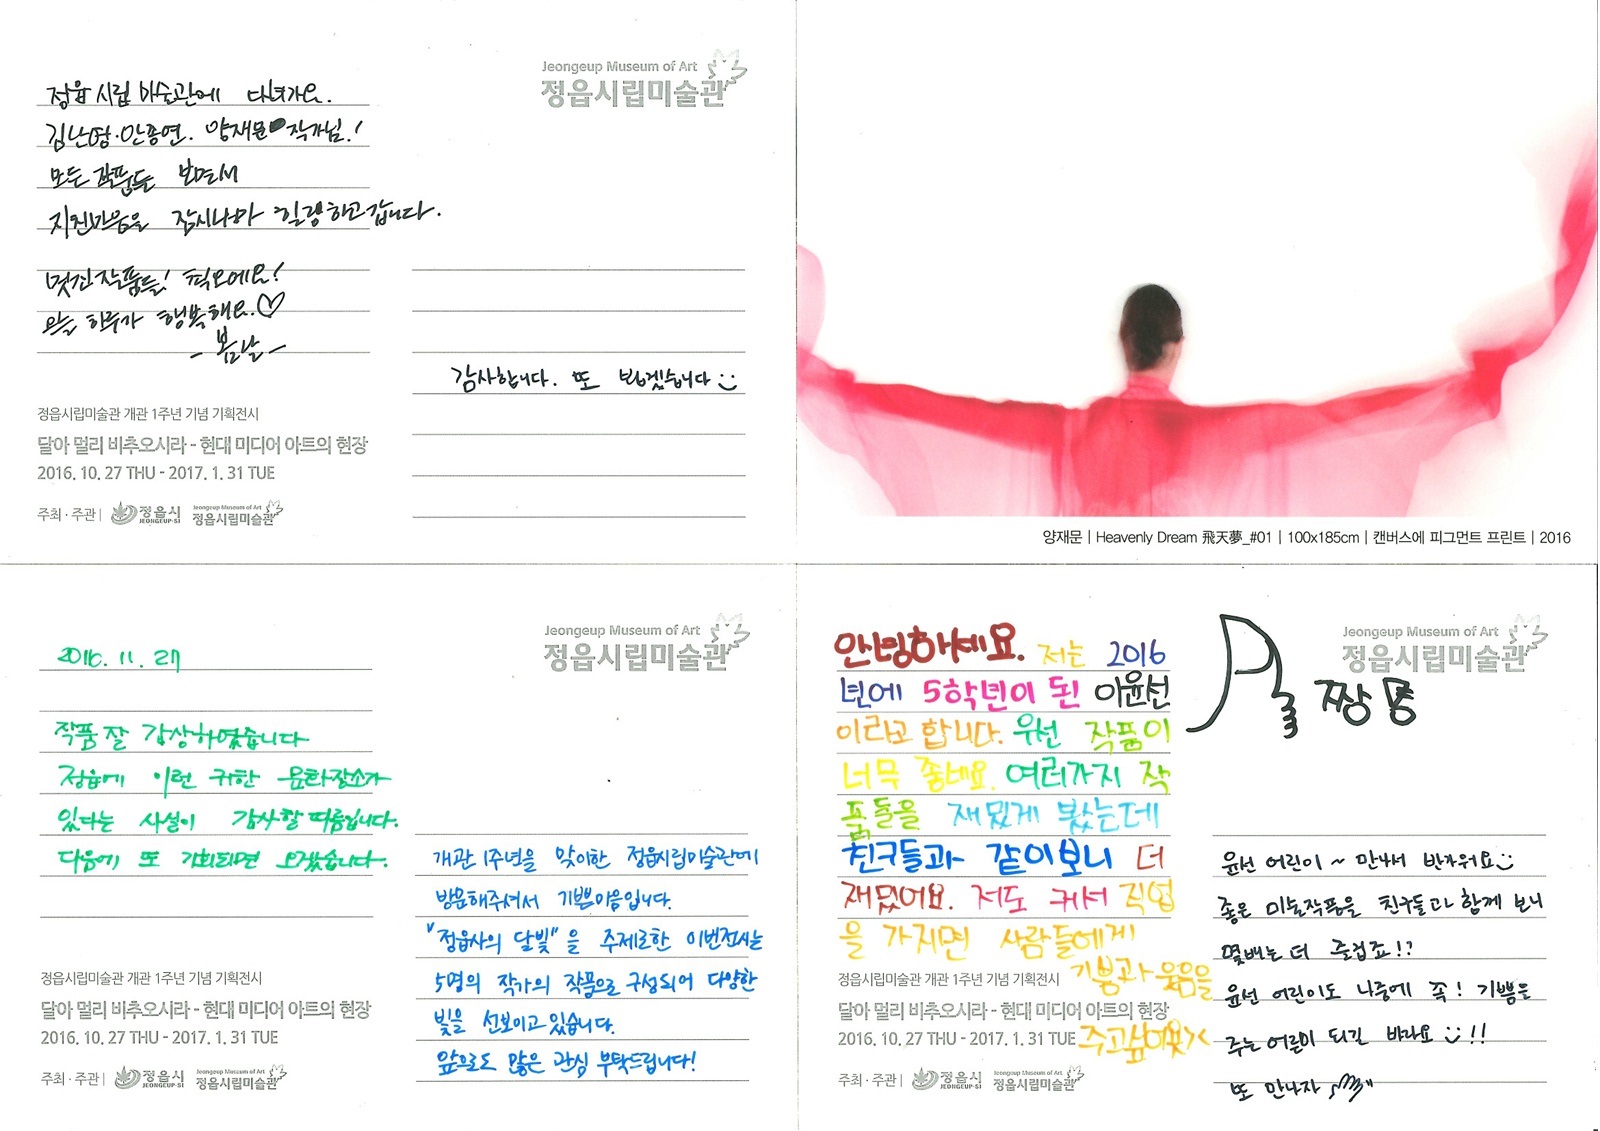 Jeongeup Museum of Art
정읍시립미술관
정읍 시립 미술관에 다녀가요.
김난영·안종연. 양재문 작가님!
모든 작품들 보면서
지친마음을 잠시나마 힐링하고 갑니다.
멋진작품들! 최고에요!
오늘 하루가 행복해요.♡
- 봄날 -
감사합니다. 또 뵙겠습니다
정읍시립미술관 개관 1주년 기념 기획전시
달아 멀리 비추오시라 - 현대 미디어 아트의 현장
2016. 10. 27 THU - 2017. 1. 31 TUE
주최 · 주관 | 정읍시 JEONGEUP-SI Jeongeup Museum of Art 정읍시립미술관
양재문 | Heavenly Dream 飛天夢_#01 | 100x185cm | 캔버스에 피그먼트 프린트 | 2016
Jeongeup Museum of Art
정읍시립미술관
2016. 11. 27
작품 잘 감상하였습니다
정읍에 이런 귀한 문화장소가
있다는 사실이 감사할 따름입니다.
다음에 또 기회되면 오겠습니다.
개관 1주년을 맞이한 정읍시립미술관에
방문해주셔서 기쁜마음입니다.
"정읍사의 달빛"을 주제로한 이번전시는
5명의 작가의 작품으로 구성되어 다양한
빛을 선보이고있습니다.
앞으로도 많은 관심 부탁드립니다!
정읍시립미술관 개관 1주년 기념 기획전시
달아 멀리 비추오시라 - 현대 미디어 아트의 현장
2016. 10. 27 THU - 2017. 1. 31 TUE
주최 · 주관 | 정읍시 JEONGEUP-SI Jeongeup Museum of Art 정읍시립미술관
Jeongeup Museum of Art
정읍시립미술관
짱
안녕하세요. 저는 2016
년에 5학년이 된 이윤선
이라고 합니다. 우선 작품이
너무 좋네요. 여러가지 작
품들을 재밌게 봤는데
친구들과 같이보니 더
재밌어요. 저도 커서 직업
을 가지면 사람들에게
기쁨과 웃음을
주고싶어요><
윤선 어린이~ 만나서 반가워요
좋은 미술작품을 친구들과 함께 보니
몇배는 더 즐겁죠!?
윤선 어린이도 나중에 꼭! 기쁨을
주는 어린이 되길 바라요 !!
또 만나자
정읍시립미술관 개관 1주년 기념 기획전시
달아 멀리 비추오시라 - 현대 미디어 아트의 현장
2016. 10. 27 THU - 2017. 1. 31 TUE
주최 · 주관 | 정읍시 JEONGEUP-SI Jeongeup Museum of Art 정읍시립미술관